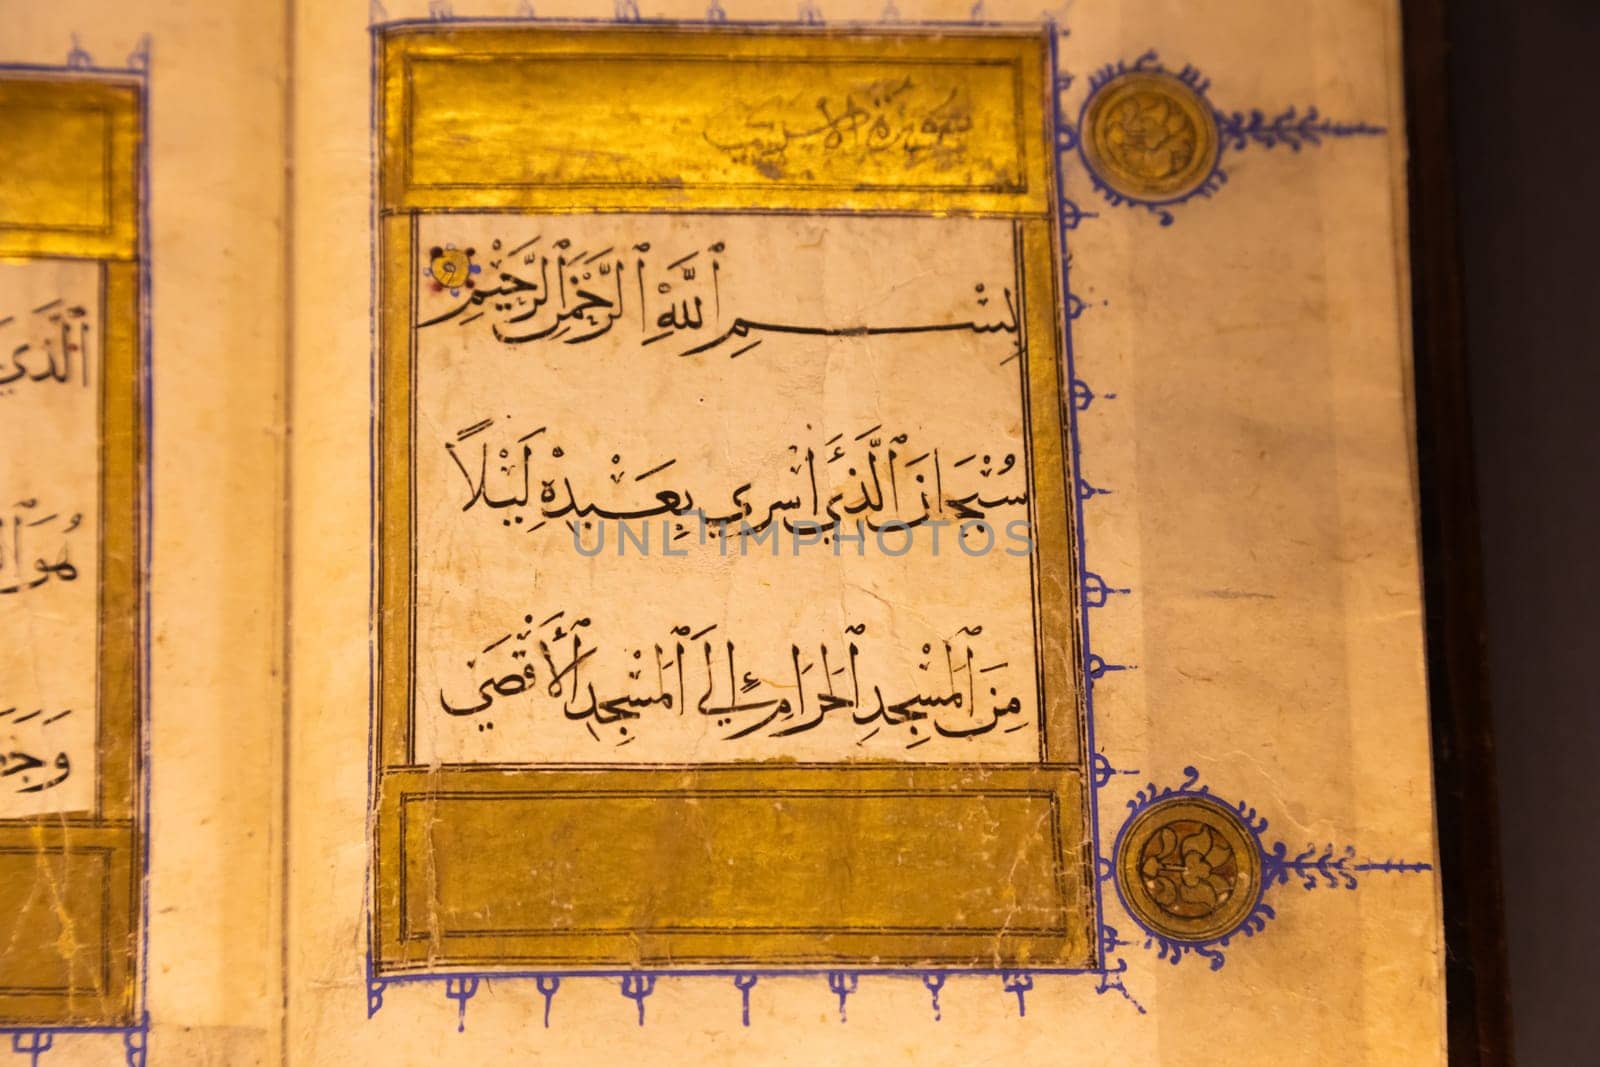 سورة الاسرى
بِسْمِ ٱللَّهِ ٱلرَّحْمَٰنِ ٱلرَّحِيمِ
سُبْحَانَ ٱلَّذِي أَسْرَي بِعَبْدِهِ لَيْلًا
مِنَ ٱلْمَسْجِدِ ٱلْحَرَامِ إِلَي ٱلْمَسْجِدِ ٱلْأَقْصَي
ٱلَّذِي
UNLIMPHOTOS